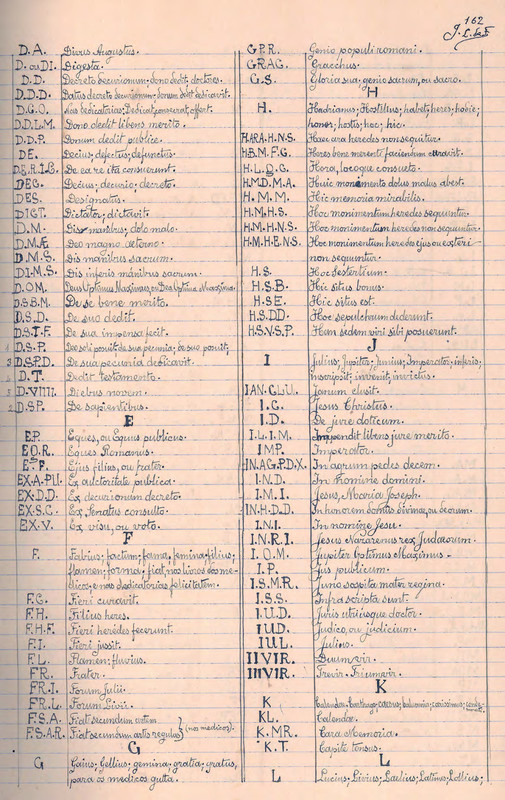 162
D.A. Divus Augustus.
D. ou DI. Digesta.
D.D. Decreto decurionum; dono dedit; doctores.
D.D.D. Datus decreto decurionum; donum dedit dedicavit.
D.D.L.M. Dono dedit libens merito.
D.D.P. Donum dedit publice.
DE. Decius; defectus; defunctus.
D.E.R.I.C. De ea re ita censuerunt.
DEC. Decius; decurio; decreto.
DES. Designatus.
DICT. Dictator; dictavit.
D.M. Dis manibus; dolo malo.
D.MÆ Deo magno æterno.
D.M.S. Dis manibus sacrum.
DI.M.S. Dis inferis manibus sacrum.
D.OM. Deus Optimus Maximus, ou Deo Optimo Maximo.
D.S.B.M. De se bene merito.
D.S.D. De suo dedit.
D.S.T.F. De sua impensa fecit.
D.S.P. Deo soli posuit; de sua pecunia; de suo posuit;
D.S.P.D. De sua pecunia dedicavit.
D.T. Dedit testamento.
D.VIIII. Diebus novem.
D.SP. De sapientibus.
E
E.P. Eques, ou Equus publicus.
E.Q.R. Eques Romanus.
E.F. Ejus filius, ou frater.
EX.A.PU. Ex auctoritate publica.
EX.D.D. Ex decurionum decreto.
EX.S.C. Ex senatus consulto.
EX.V. Ex visu, ou voto.
F
F. Fabius; factum; fama; femina; filius;
flamen; forma; fiat, nos livros dos me-
dicos; e nas dedicatorias felicitatem.
F.C. Fieri curavit.
F.H. Filius heres.
F.H.F. Fieri heredes fecerunt.
F.I. Fieri jussit.
F.L. Flamen; fluvius.
FR. Frater.
FR.I. Forum Julii.
FR.L. Forum Livii.
F.S.A. Fiat secundum artem
F.S.A.R. Fiat secundum artis regulas } (nos medicos).
G
G Gaius; Gellius; gemina; gratia; gratus,
para os medicos gutta.
G.P.R. Genio populi romani.
GRAC. Gracchus.
G.S. Gloria sua; genio sacrum, ou sacro.
H
H. Hadrianus; Hostilius; habet; heres; hobie;
honor; hostis; hoc; hic.
H.ARA.H.N.S. Haec ara heredes non sequitur.
H.B.M.F.C. Heres bene merenti faciendum curavit.
H.L.Q.C. Hora, locoque consueto.
H.M.D.M.A. Huic monumento dolus malus abest.
H.M.M. Hic memoria mirabilis.
H.M.H.S. Hoc monimentum heredes sequuntur.
H.M.H.N.S. Hoc monimentum heredes non sequuntur.
H.M.H.E.N.S. Hoc monimentum heredes ejus ou exteri
non sequuntur.
H.S. Hoc sestertium.
H.S.B. Hic situs bonus.
H.S.E. Hic situs est.
H.S.DD. Hoc sepulcrum dederunt.
H.S.V.S.P. Han sedem vivi sibi posuerunt.
J
I Julius; Jupiter; Junius; Imperator; inferis;
inscripsit; invenit; invictus.
IAN.CLU. Janum clusit.
I.C. Jesus Christus.
I.D. De jure doticum.
I.L.I.M. Impendit libens jure merito.
IMP. Imperator.
IN.AG.P.D.X. In agrum pedes decem.
I.N.D. In nomine domini.
I.M.I. Jesus, Maria Joseph.
IN.H.D.D. In honorem domus divinæ, ou deorum.
I.N.I. In nomine Jesu.
I.N.R.I. Jesus Nazarenus rex Judæorum.
I.O.M. Jupiter Optimus Maximus.
I.P. Jus publicum.
I.S.M.R. Juno sospita mater regina.
I.S.S. Infra scrista sunt.
I.U.D. Juris utriusque doctor.
IUD. Judico, ou judicium.
IUL. Julius.
II VIR. Duumvir.
III VIR. Trevir. Triumvir.
K
KL. Calendæ.
K.MR. Cara Memoria.
K.T. Capite tonsus.
L
L Lucius; Livius; Laelius; Latinus; Lollius;